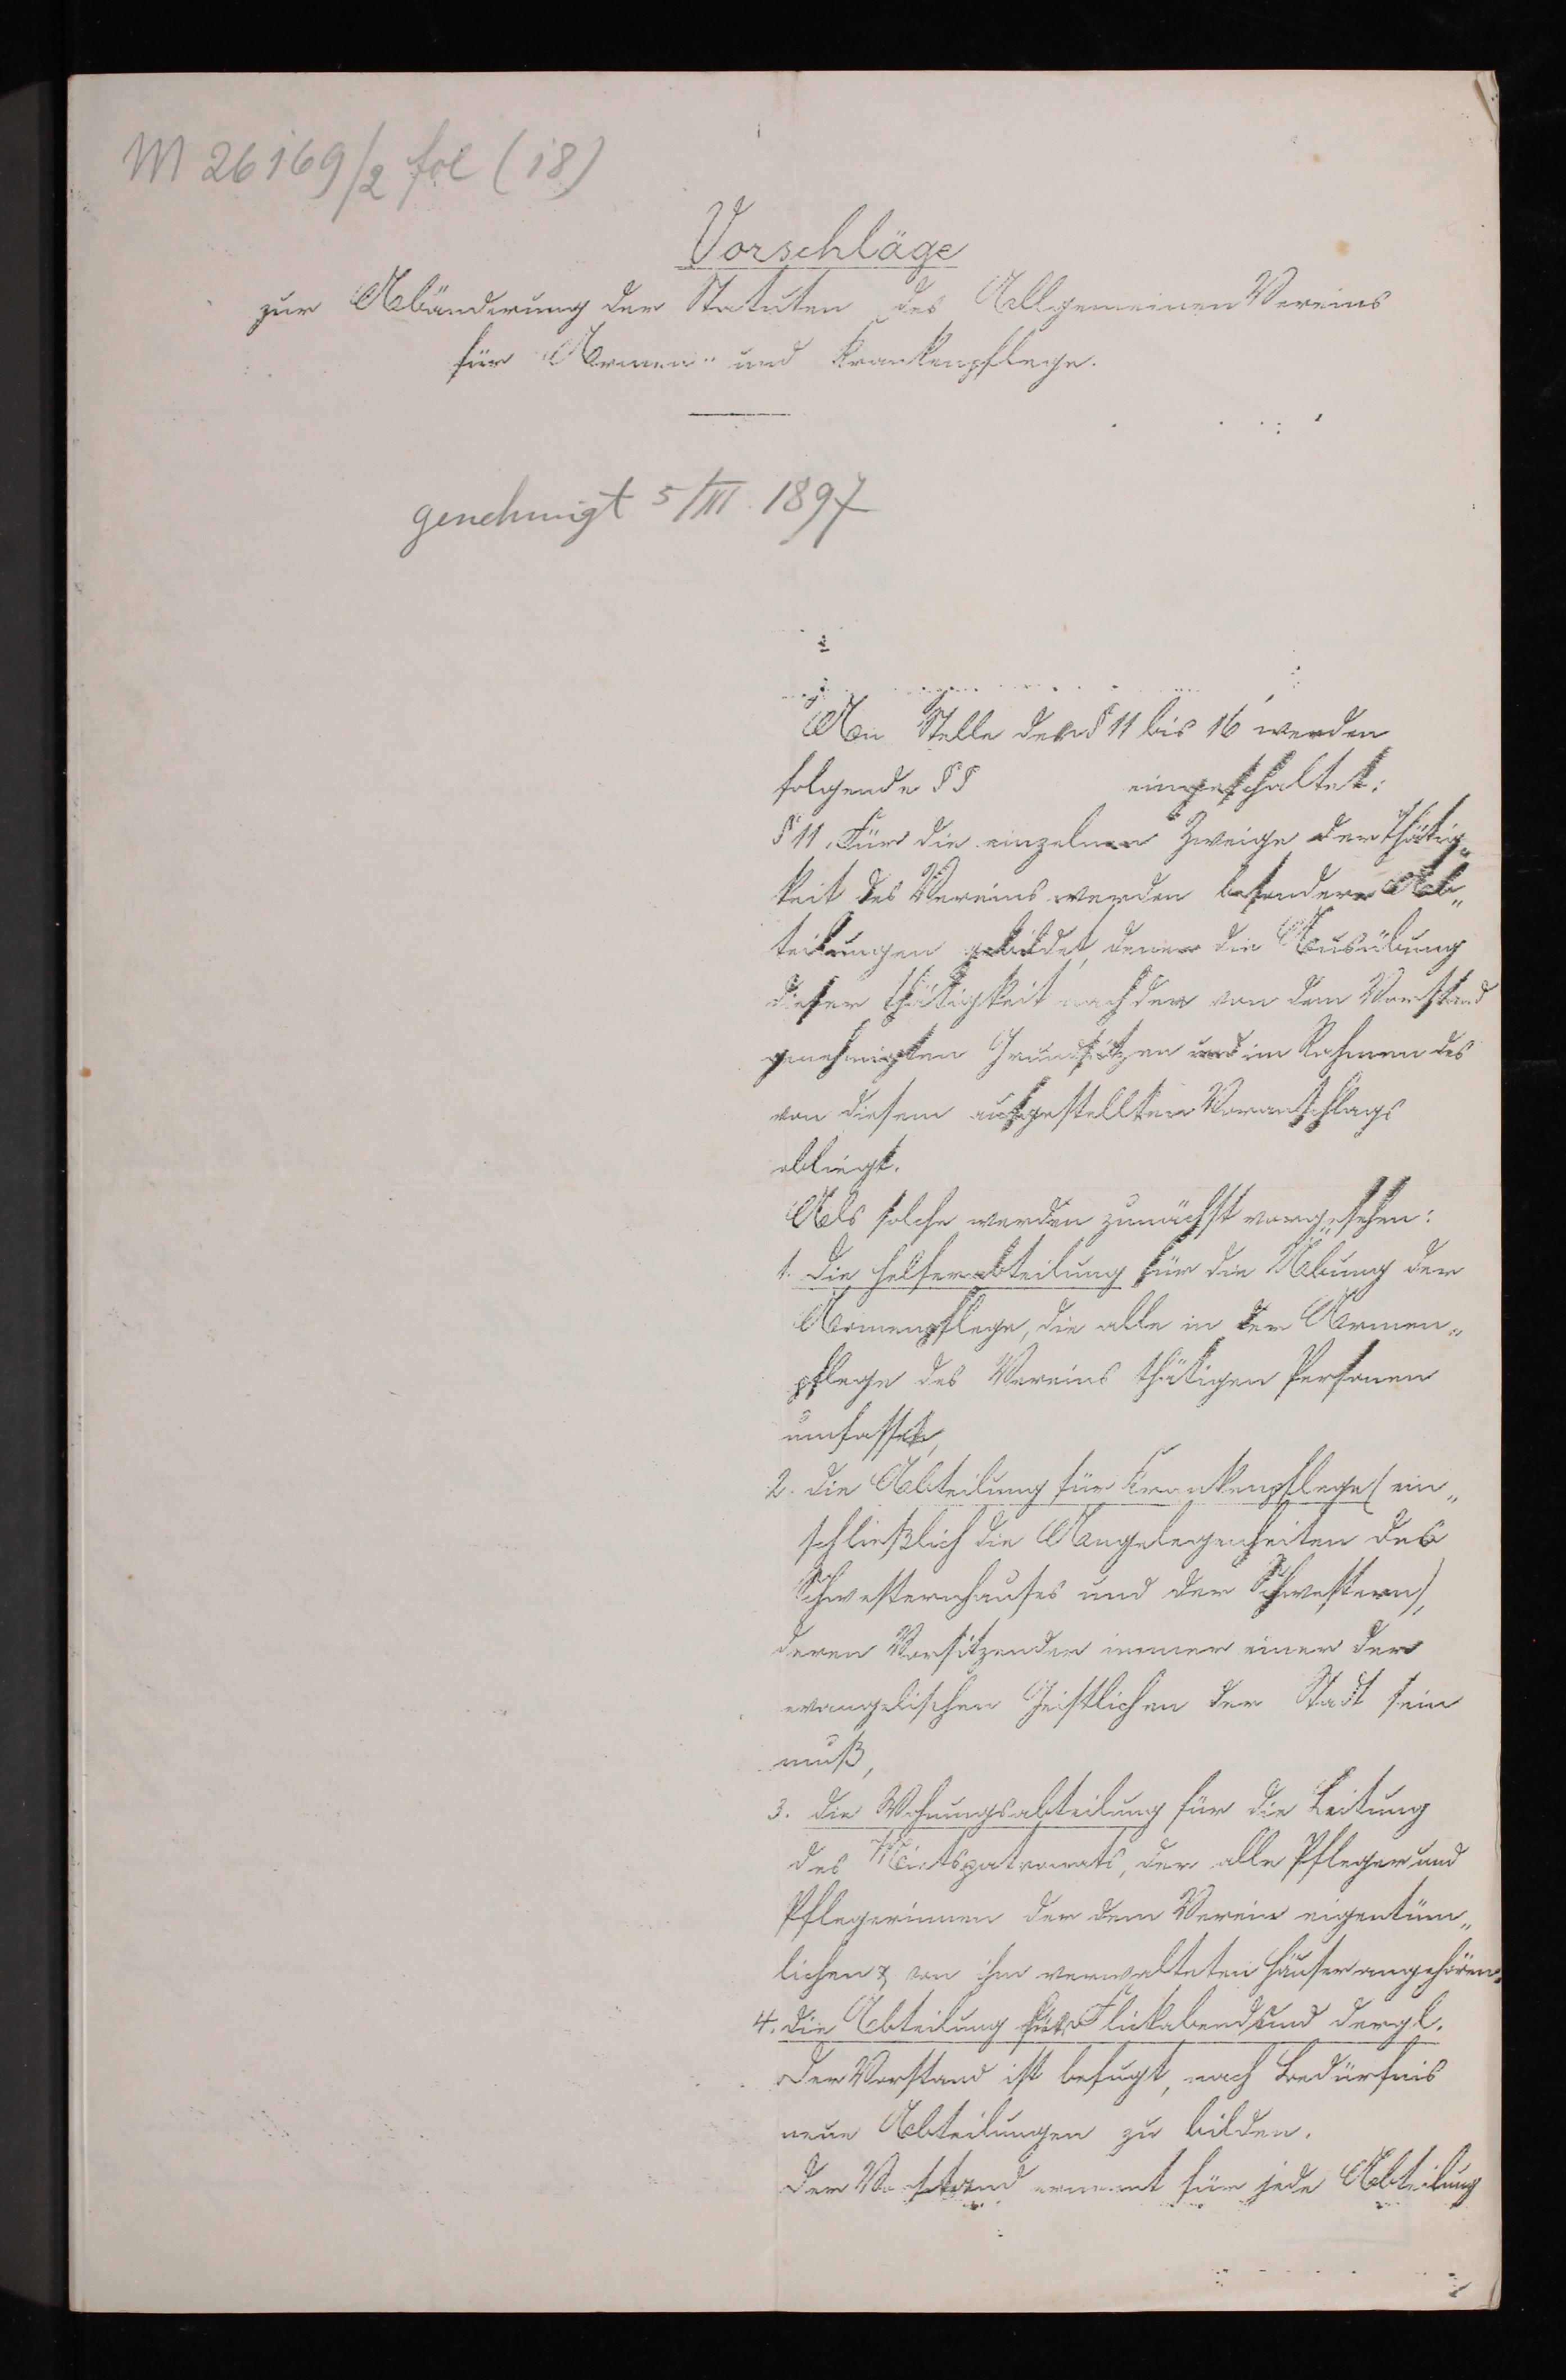 M 26169/2 fol (18)
Vorschläge
zur Abänderung der Statuten des Allgemeinen Vereins
für Armen- und Krankenpflege.
genehmigt 5/III. 1897
An Stelle der § 11 bis 16 werden
folgende §§ eingeschaltet:
§ 11. Für die einzelnen Zweige der Thätig„
keit des Vereins werden besondere Ab„
teilungen gebildet, denen die Ausübung
dieser Thätigkeit nach den von dem Vorstand
genehmigten Grundsätzen und im Rahmen des
von diesem aufgestellten Voranschlags
obliegt.
Als solche werden zunächst vorgesehen:
1. die Helferabteilung für die Übung der
Armenpflege, die alle in der Armen„
pflege des Vereins thätigen Personen
umfasst,
2. die Abteilung für Krankenpflege (ein„
schließlich die Angelegenheiten des
Schwesternhauses und der Schwestern),
deren Vorsitzender immer einer der
evangelischen Geistlichen der Stadt sein
muß,
3. die Wohnungsabteilung für die Leitung
des Mietspatronats, der alle Pfleger und
Pflegerinnen der dem Verein eigentüm„
lichen & von ihm verwalteten Häuser angehören.
4. die Abteilung für Flickabende und dergl.
Der Vorstand ist befugt, nach Bedürfnis
neue Abteilungen zu bilden.
Der Vorstand ernennt für jede Abteilung